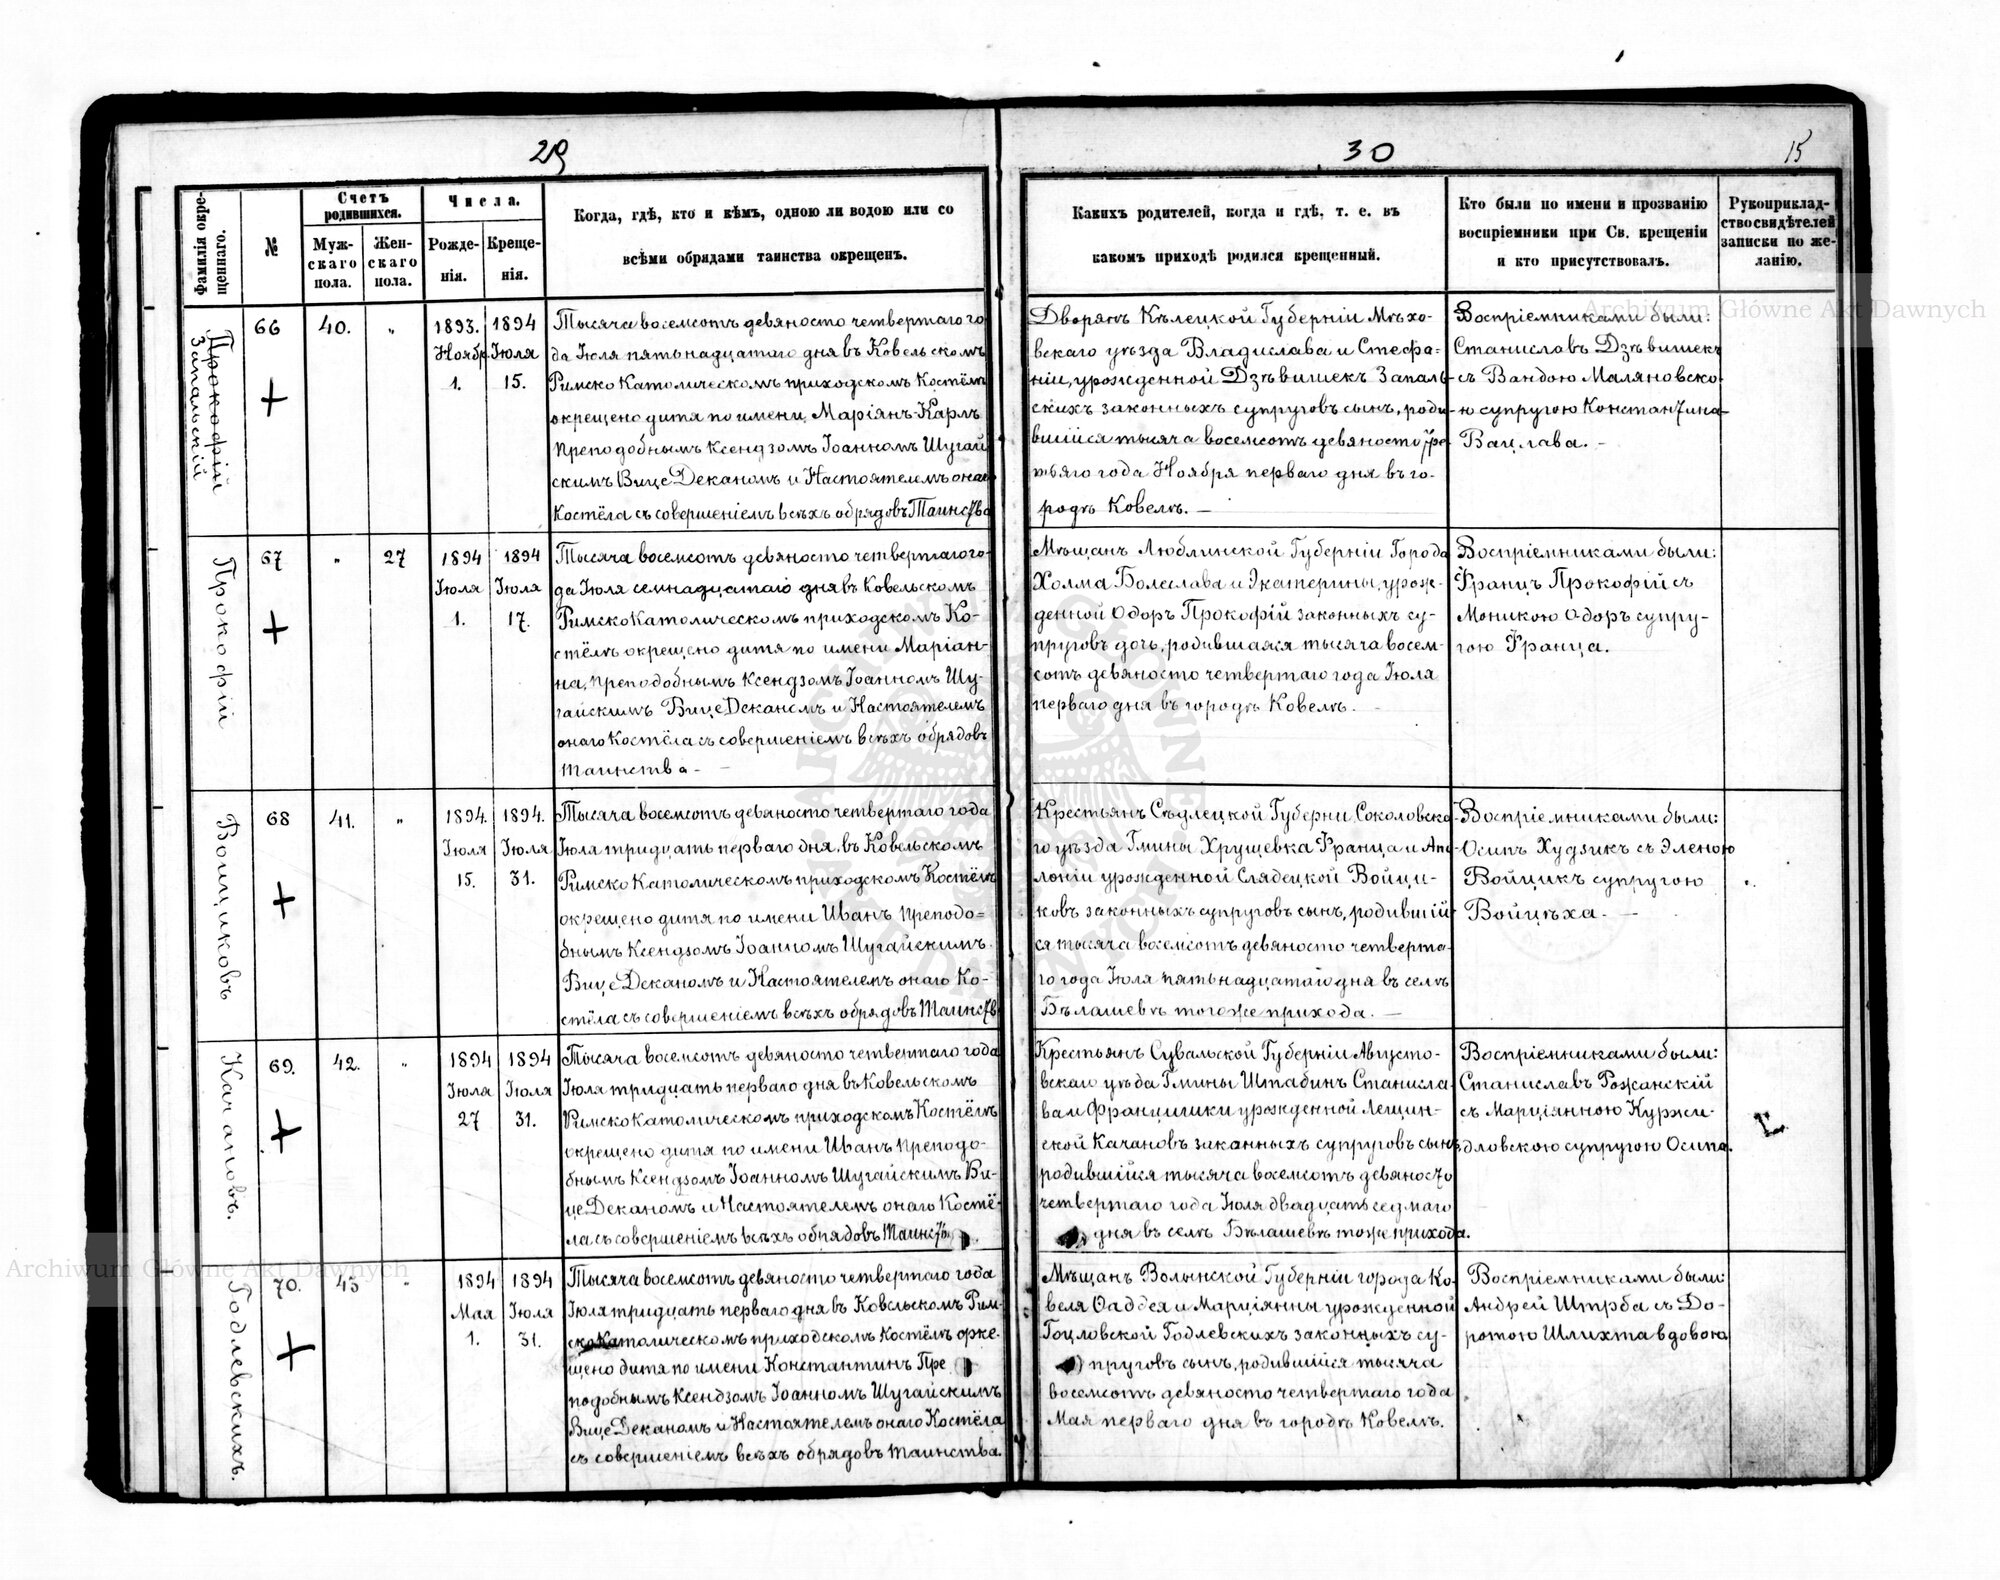 29
30
15
Фамилія окре-
щеннаго.
№
Счетъ
родившихся.
Муж-
скаго
пола.
Жен-
скаго
пола.
Числа.
Рожде-
нія.
Креще-
нія.
Когда, гдѣ, кто и кѣмъ, одною ли водою или со
всѣми обрядами таинства окрещенъ.
Какихъ родителей, когда и гдѣ, т. е. въ
какомъ приходѣ родился крещенный.
Кто были по имени и прозванію
воспріемники при Св. крещеніи
и кто присутствовалъ.
Рукоприклад-
ство свидѣтелей
записки по же-
ланію.
Прокофій
Запальскій
66
40.
„
1893.
Ноябр
1.
1894
Іюля
15.
Тысяча восемсотъ девяносто четвертаго го-
да Іюля пятьнадцатаго дня въ Ковельскомъ
Римско Католическомъ приходскомъ Костёлѣ
окрещено дитя по имени Маріянъ-Карлъ
Преподобнымъ Ксендзомъ Іоанномъ Шугай
скимъ Вице Деканомъ и Настоятелемъ онаго
Костёла съ совершеніемъ всѣхъ обрядовъ Таинства
Дворянъ Кѣлецкой Губерніи Мѣхо-
вскаго уѣзда Владислава и Стефа-
ніи, урожденной Дзѣвишекъ Запаль-
скихъ законныхъ супруговъ сынъ, роди-
вшійся тысяча восемсотъ девяносто тре
тьяго года Ноября перваго дня въ го-
родѣ Ковелѣ. —
Воспріемниками были:
Станиславъ Дзѣвишекъ
съ Вандою Маляновско-
ю супругою Константина-
Вацлава. -
Прокофій
67
„
27
1894
Іюля
1.
1894
Іюля
17.
Тысяча восемсотъ девяносто четвертаго го-
да Іюля семнадцатаго дня въ Ковельскомъ
Римско Католическомъ приходскомъ Ко-
стёлѣ окрещено дитя по имени Маріан-
на, Преподобнымъ Ксендзомъ Іоанномъ Шу-
гайскимъ Вице Деканомъ и Настоятелемъ
онаго Костёла съ совершеніемъ всѣхъ обрядовъ
Таинства -
Мѣщанъ Люблинской Губерніи Города
Холма Болеслава и Екатерины, урож-
денной Одоръ Прокофій законныхъ су-
пруговъ дочь, родившаяся тысяча восем-
сотъ девяносто четвертаго года Іюля
перваго дня въ городѣ Ковелѣ.
Воспріемниками были:
Францъ Прокофій съ
Моникою Одоръ супру-
гою Франца.
Войциковъ
68
41.
„
1894.
Іюля
15.
1894.
Іюля
31.
Тысяча восемсотъ девяносто четвертаго года
Іюля тридцать перваго дня, въ Ковельскомъ
Римско Католическомъ приходскомъ Костёлѣ
окрещено дитя по имени Иванъ Преподо=
бнымъ Ксендзомъ Іоанномъ Шугайскимъ
Вице Деканомъ и Настоятелемъ онаго Ко-
стёла съ совершеніемъ всѣхъ обрядовъ Таинств
Крестьянъ Сѣдлецкой Губерни, Соколовска-
го уѣзда Гмины Хрущевка Франца и Апо-
лоніи урожденной Слядецкой Войци-
ковъ законныхъ супруговъ сынъ, родившій-
ся тысяча восемсотъ девяносто четверта-
го года Іюля пятьнадцатаго дня въ селѣ
Бѣлашевѣ тогоже прихода. —
Воспріемниками были:
Осипъ Худзикъ съ Эленою
Войцикъ супругою
Войцѣха. —
Качановъ.
69.
42.
„
1894
Іюля
27
1894
Іюля
31.
Тысяча восемсотъ девяносто четвертаго года
Іюля тридцать перваго дня въ Ковельскомъ
Римско Католическомъ приходскомъ Костёлѣ
окрещено дитя по имени Иванъ Преподо-
бнымъ Ксендзомъ Іоанномъ Шугайскимъ Ви-
це Деканомъ и Настоятелемъ онаго Костё-
ла съ совершеніемъ всѣхъ обрядовъ Таинств
Крестьянъ Сувальской Губерніи Августо-
вскаго уѣзда Гмины Штабинъ Станисла-
ва и Францишки урожденной Лещин-
ской Качановъ законныхъ супруговъ сынъ
родившійся тысяча восемсотъ девяносто
четвертаго года Іюля двадцать седмаго
дня въ селѣ Бѣлашевѣ тоже прихода.
Воспріемниками были:
Станиславъ Рожанскій
съ Марціянною Куржи-
дловскою супругою Осипа.
Годлевскихъ.
70.
43
„
1894
Мая
1.
1894
Іюля
31.
Тысяча восемсотъ девяносто четвертаго года
Іюля тридцать перваго дня въ Ковельскомъ Рим-
ско Католическомъ приходскомъ Костёлѣ окре-
щено дитя по имени Константинъ Пре
подобнымъ Ксендзомъ Іоанномъ Шугайскимъ
Вице Деканомъ и Настоятелемъ онаго Костёла
съ совершеніемъ всѣхъ обрядовъ Таинства.
Мѣщанъ Волынской Губерніи города Ко-
веля Фаддея и Марціянны урожденной
Гоцловской Годлевскихъ законныхъ су-
пруговъ сынъ, родившійся тысяча
восемсотъ девяносто четвертаго года
Мая перваго дня въ городѣ Ковелѣ.
Воспріемниками были:
Андрей Штрба съ До-
ротою Шлихта вдовою
Archiwum Główne Akt Dawnych
Archiwum Główne Akt Dawnych